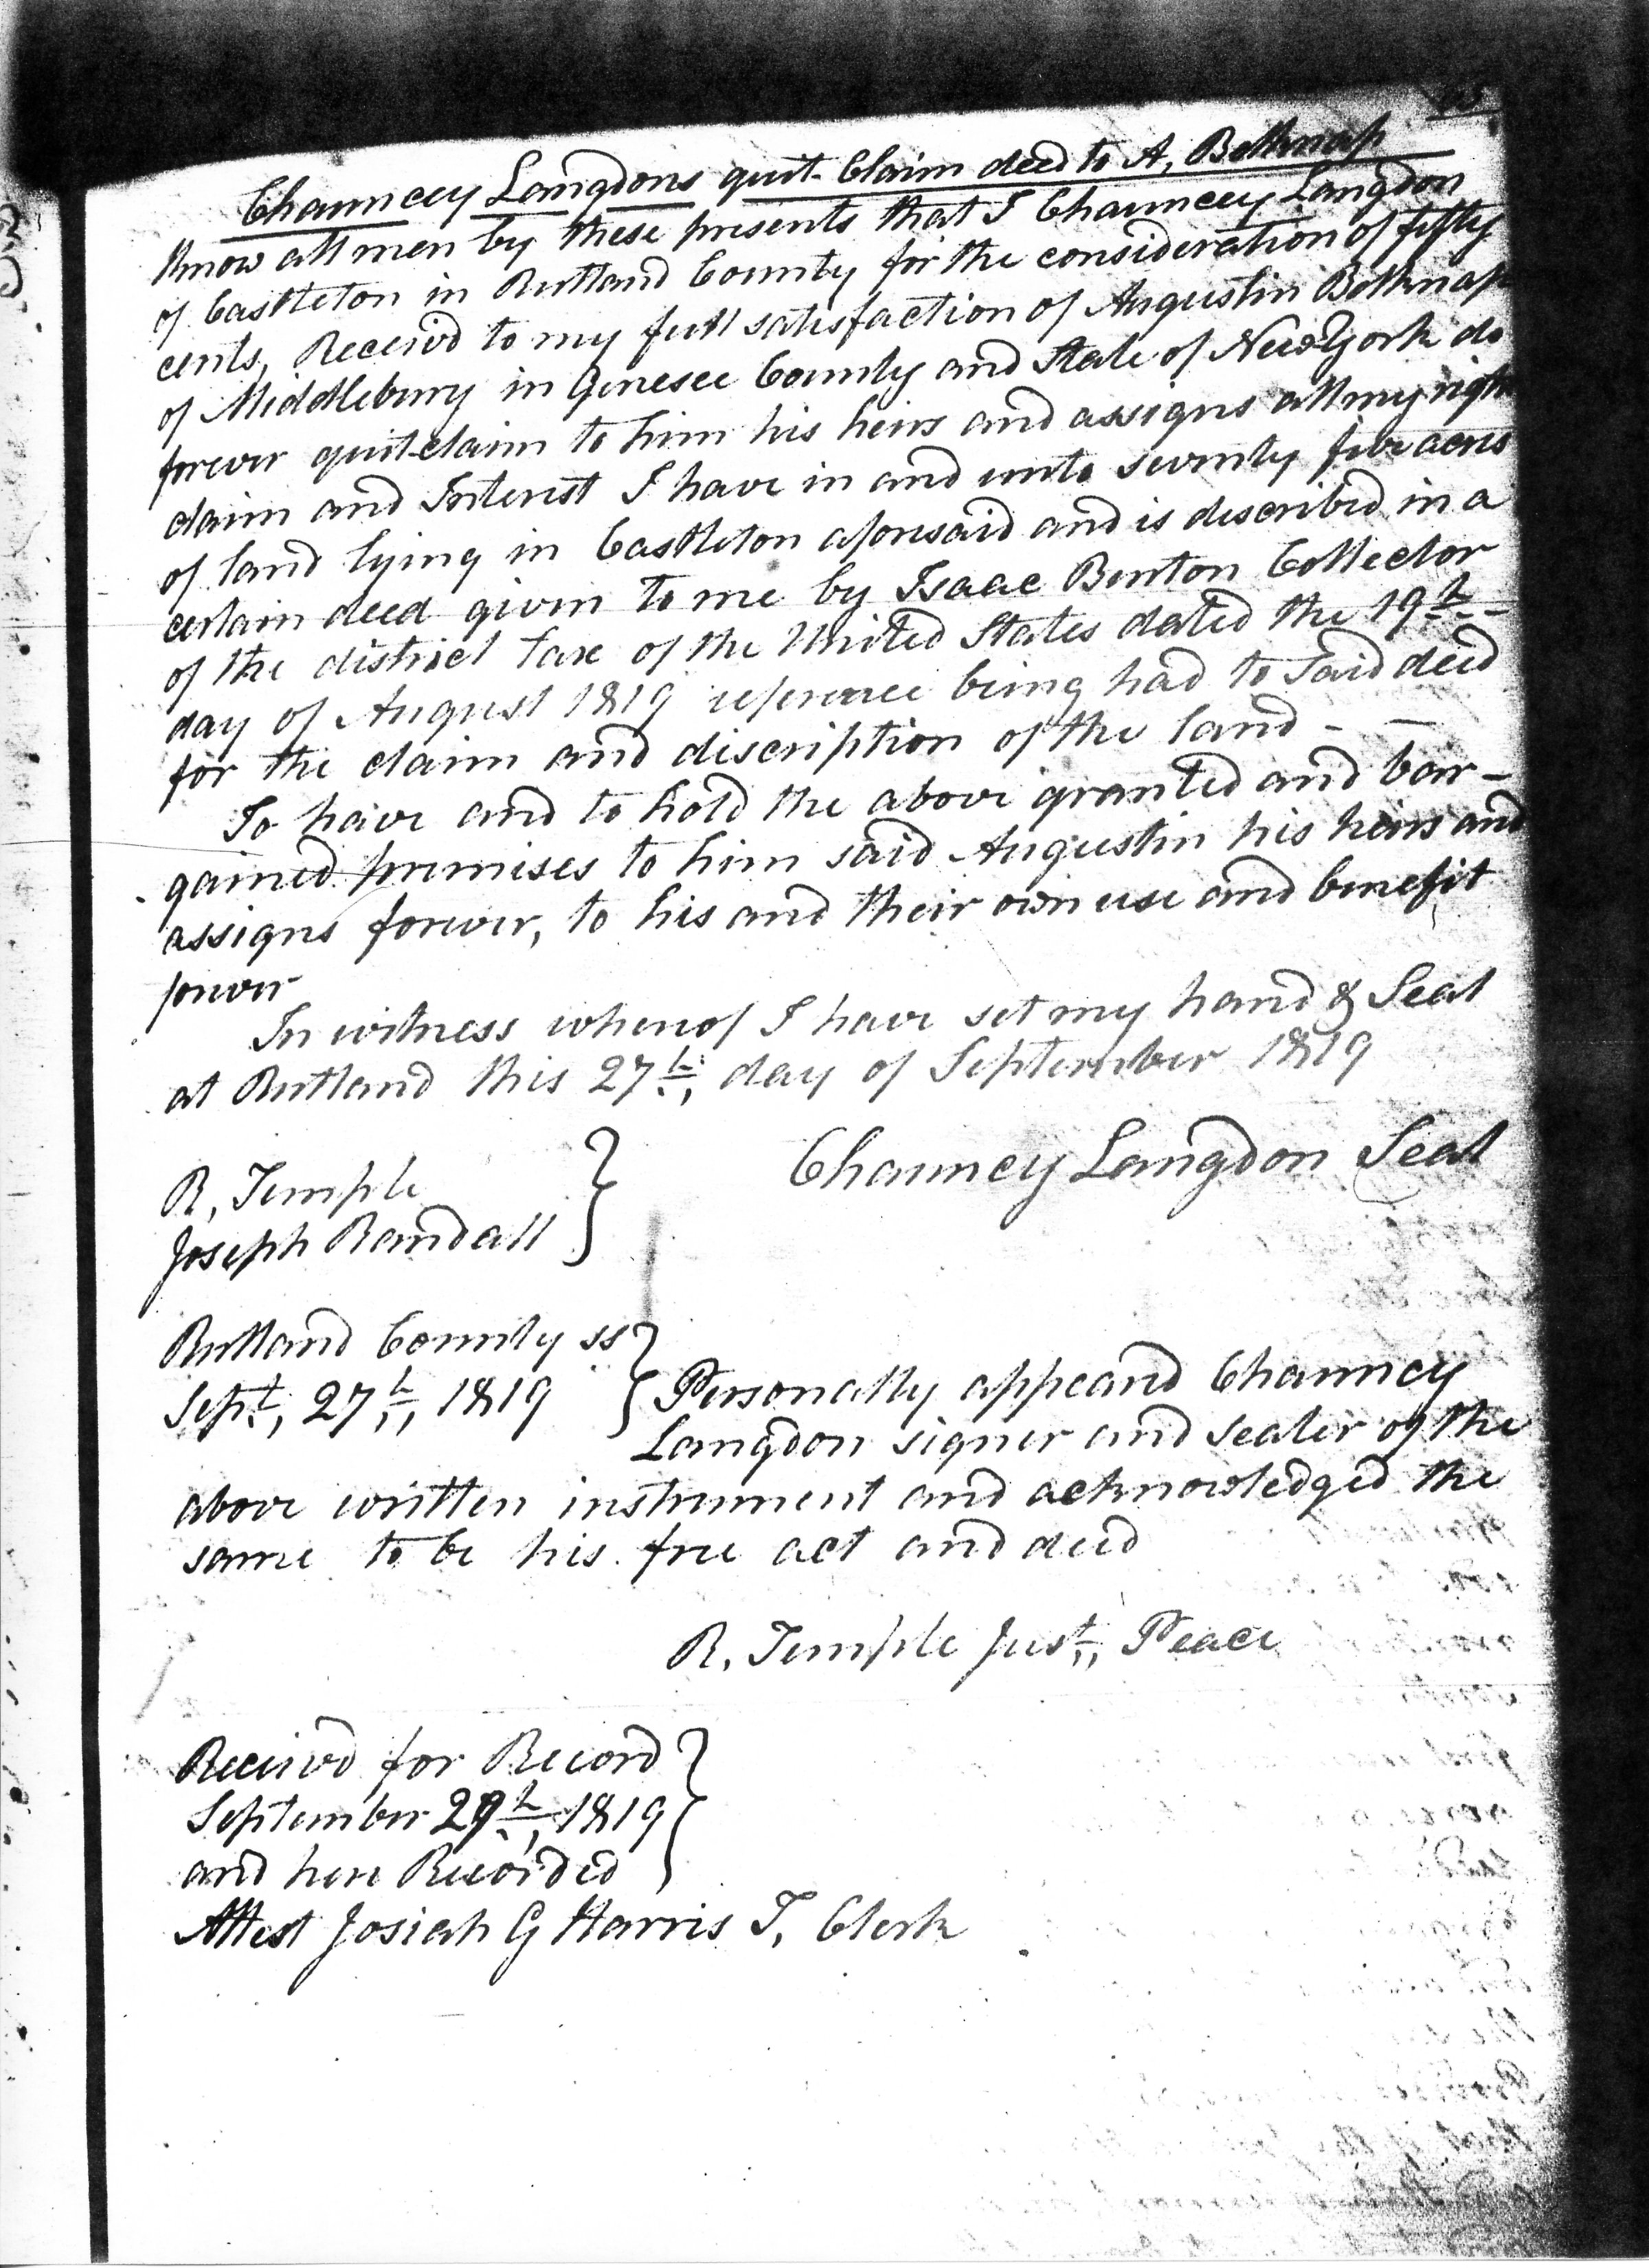 Chauncey Langdons quit-Claim deed to A, Belknap
Know all men by these presents that I Chauncey Langdon
of Castleton in Rutland County for the consideration of fifty
cents, Receivd to my full satisfaction of Augustin Belknap
of Middlebury in Genesee County and State of New York do
forever quit-claim to him his heirs and assigns all my right
claim and Interest I have in and unto seventy five acres
of land lying in Castleton aforesaid and is described in a
certain deed given to me by Isaac Burton Collector
of the district Tax of the United States dated the 19th
day of August 1819 reference being had to said deed
for the claim and discription of the land -
To have and to hold the above granted and bar-
gained premises to him said Augustin his heirs and
assigns forever, to his and their own use and benefit
forever
In witness whereof I have set my hand & Seal
at Rutland this 27th, day of September 1819
Chauncey Langdon Seal
R, Temple
Joseph Randall
Rutland County ss
Sept, 27th, 1819
Personally appeard Chauncey
Langdon signer and sealer of the
above written instrument and acknowledged the
same to be his free act and deed
R, Temple Just, Peace
Receivd for Record
September 29th, 1819
and here Recorded
Attest Josiah G Harris T, Clerk